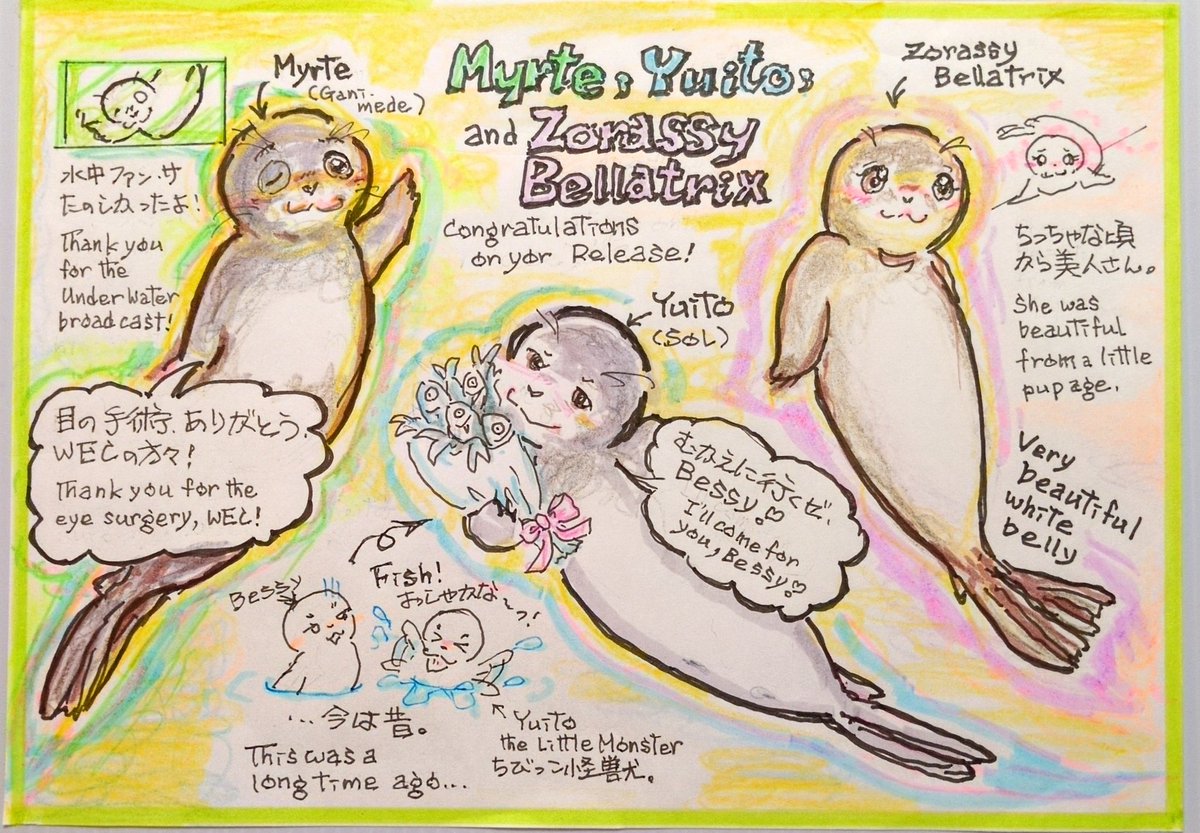 Myrte, Yuito,
and Zorassy
Bellatrix
Congratulations
on yor Release!
Myrte
(Gani-
mede)
水中ファンサ
たのしかったよ!
Thank you
for the
Underwater
broadcast!
目の手術、ありがとう、
WECの方々!
Thank you for the
eye surgery, WEC!
Yuito
(SOL)
むかえに行くぜ、
Bessy♡
I'll come for
you, Bessy♡
Zorassy
Bellatrix
ちっちゃな頃
から美人さん。
She was
beautiful
from a little
pup age.
Very
beautiful
white
belly
Bessy
Fish!
おっしゃかな~っ!
...今は昔。
This was a
long time ago...
Yuito
the Little Monster
ちびっこ怪獣犬。